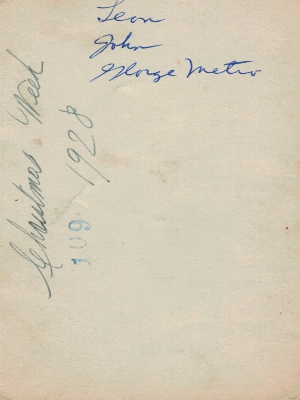 Leon
John
George Metro
Christmas Week
1928
109